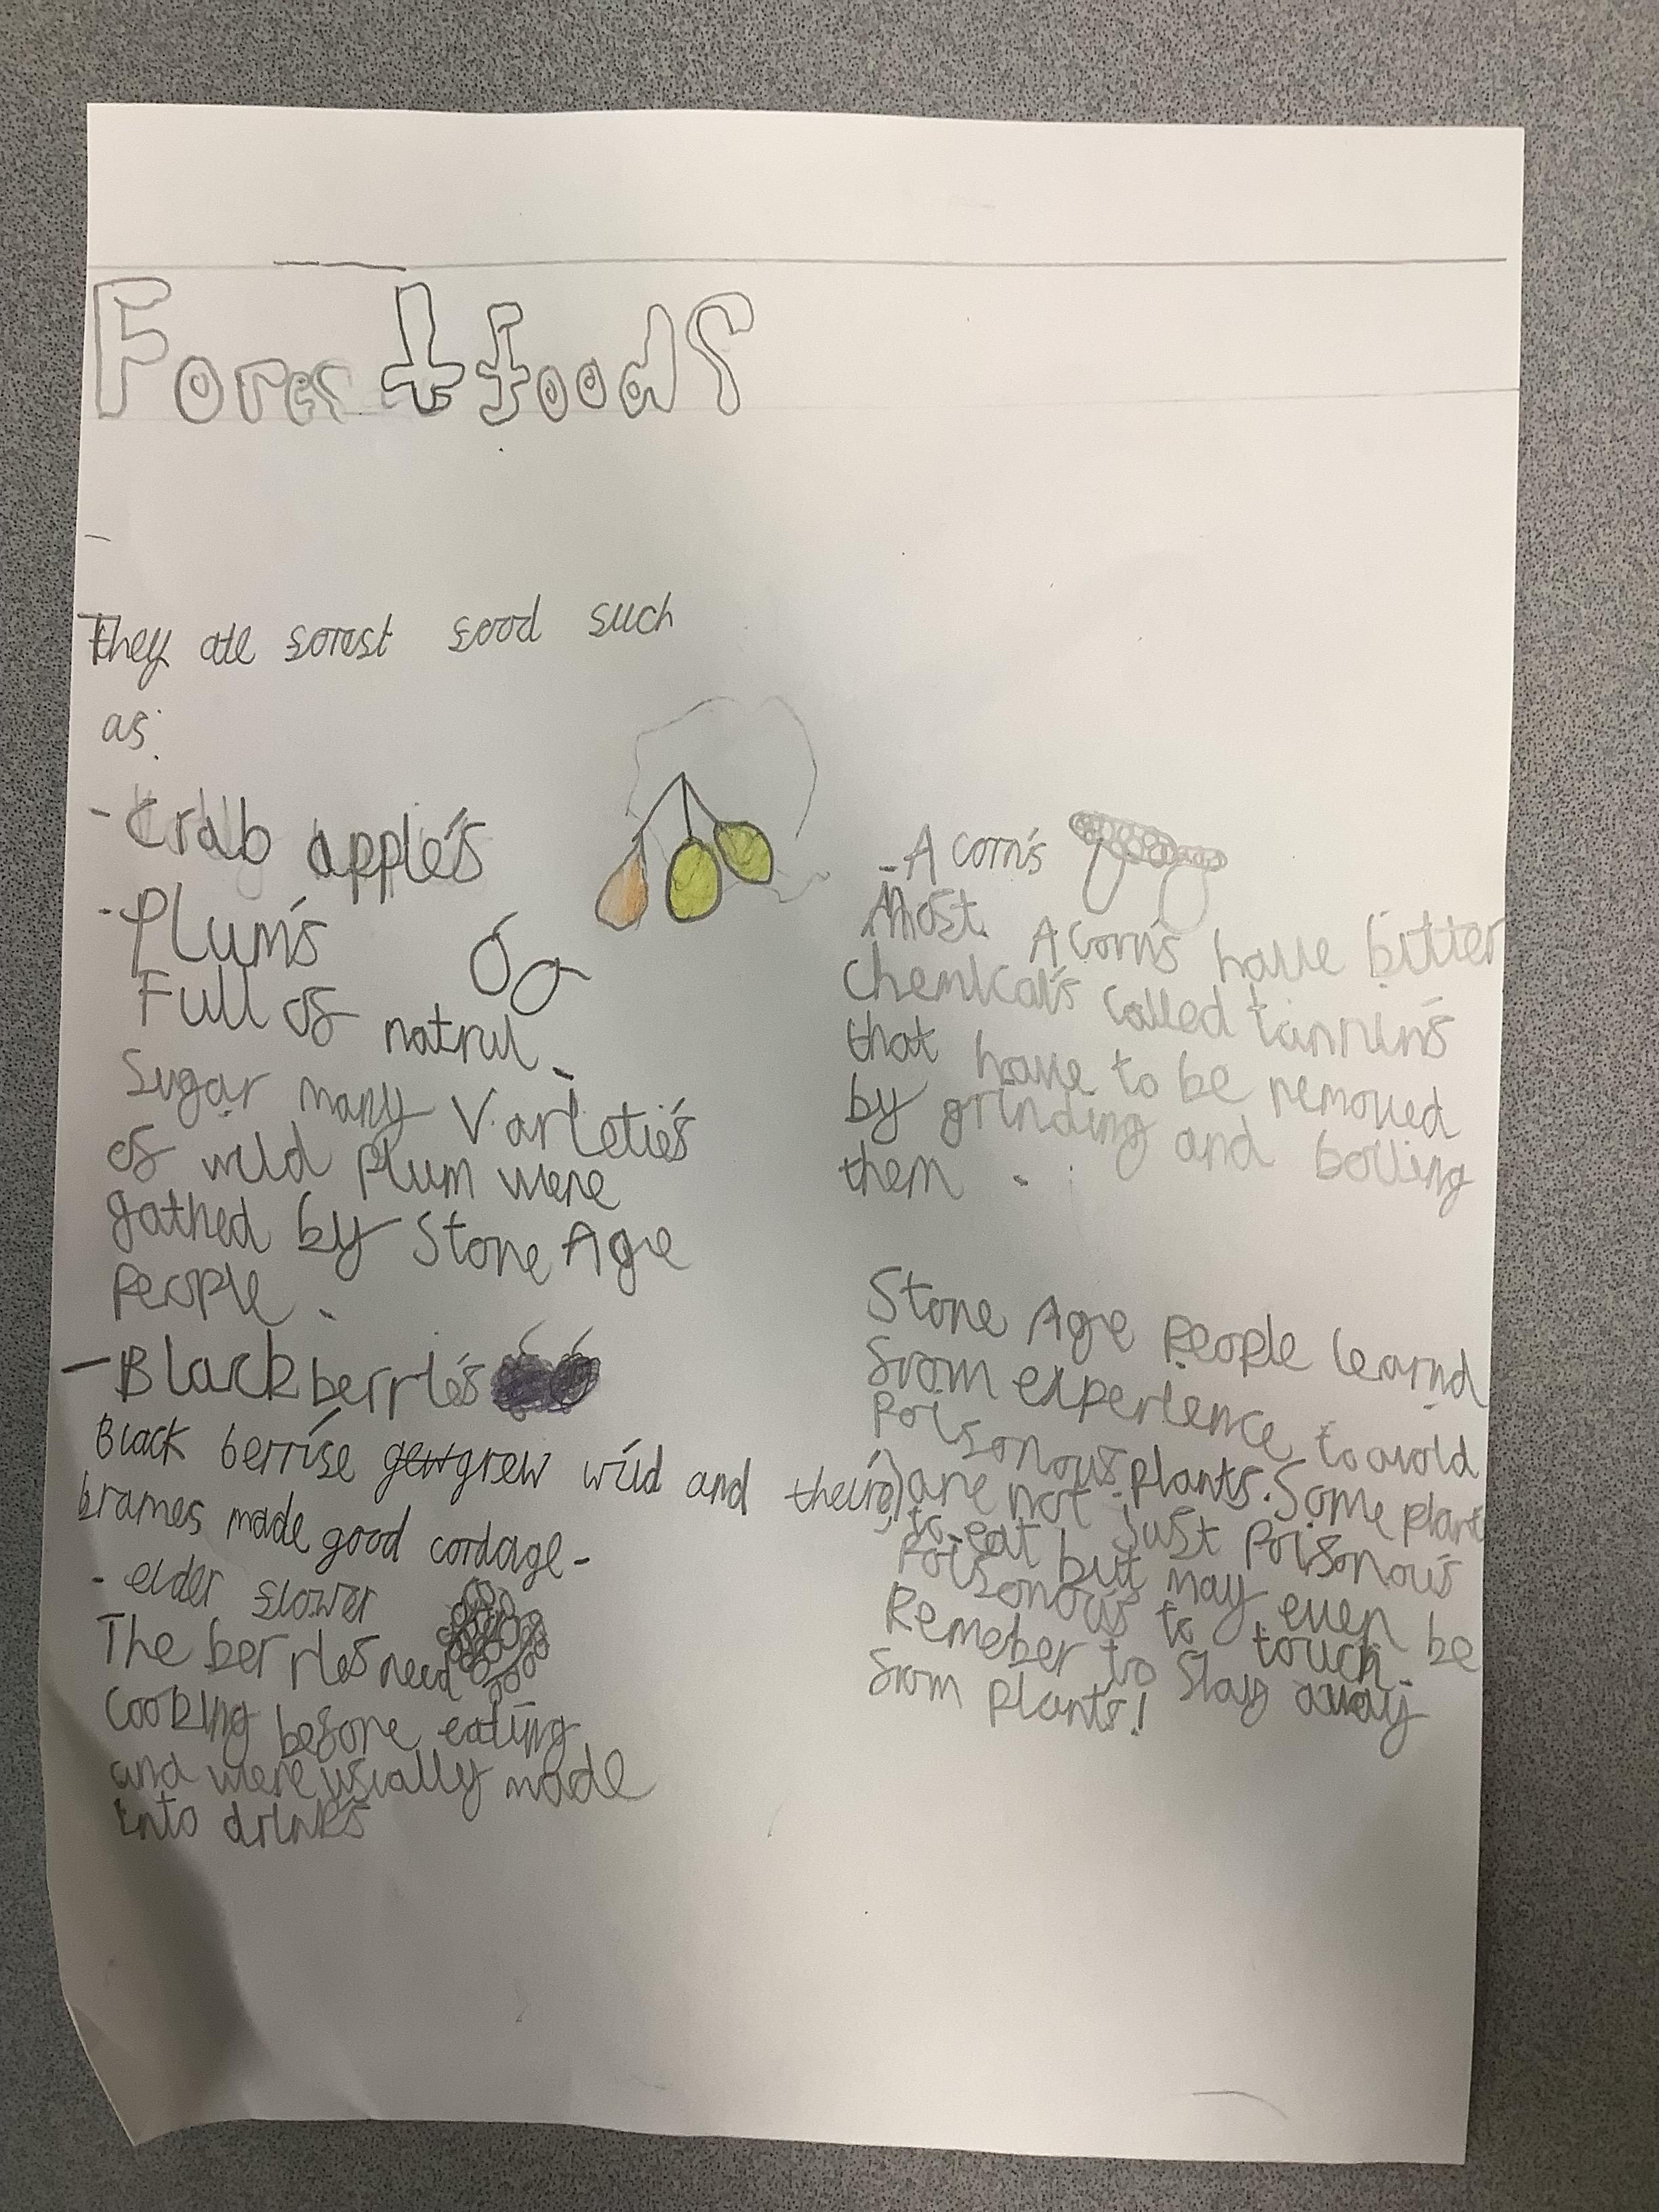 Forest foods
They ate forest food such
as:
- Crab apple's
- Plum's
Full of natrul
Sugar many Varieties
of wild plum were
gathed by Stone Age
People.
- Blackberries
Black berrise gew grew wild and their
brames made good cordage-
- elder flower
The berries need
cooking before eating
and were usually made
into drinks
- Acorn's
Most Acorns have bitter
chemicals called tannins
that have to be removed
by grinding and boiling
them.
Stone Age People learnd
from experience to avoid
Poisonous plants. Some plant
are not just poisonous
to eat but may even be
Poisonous to touch.
Remeber to Stay away
from plants!